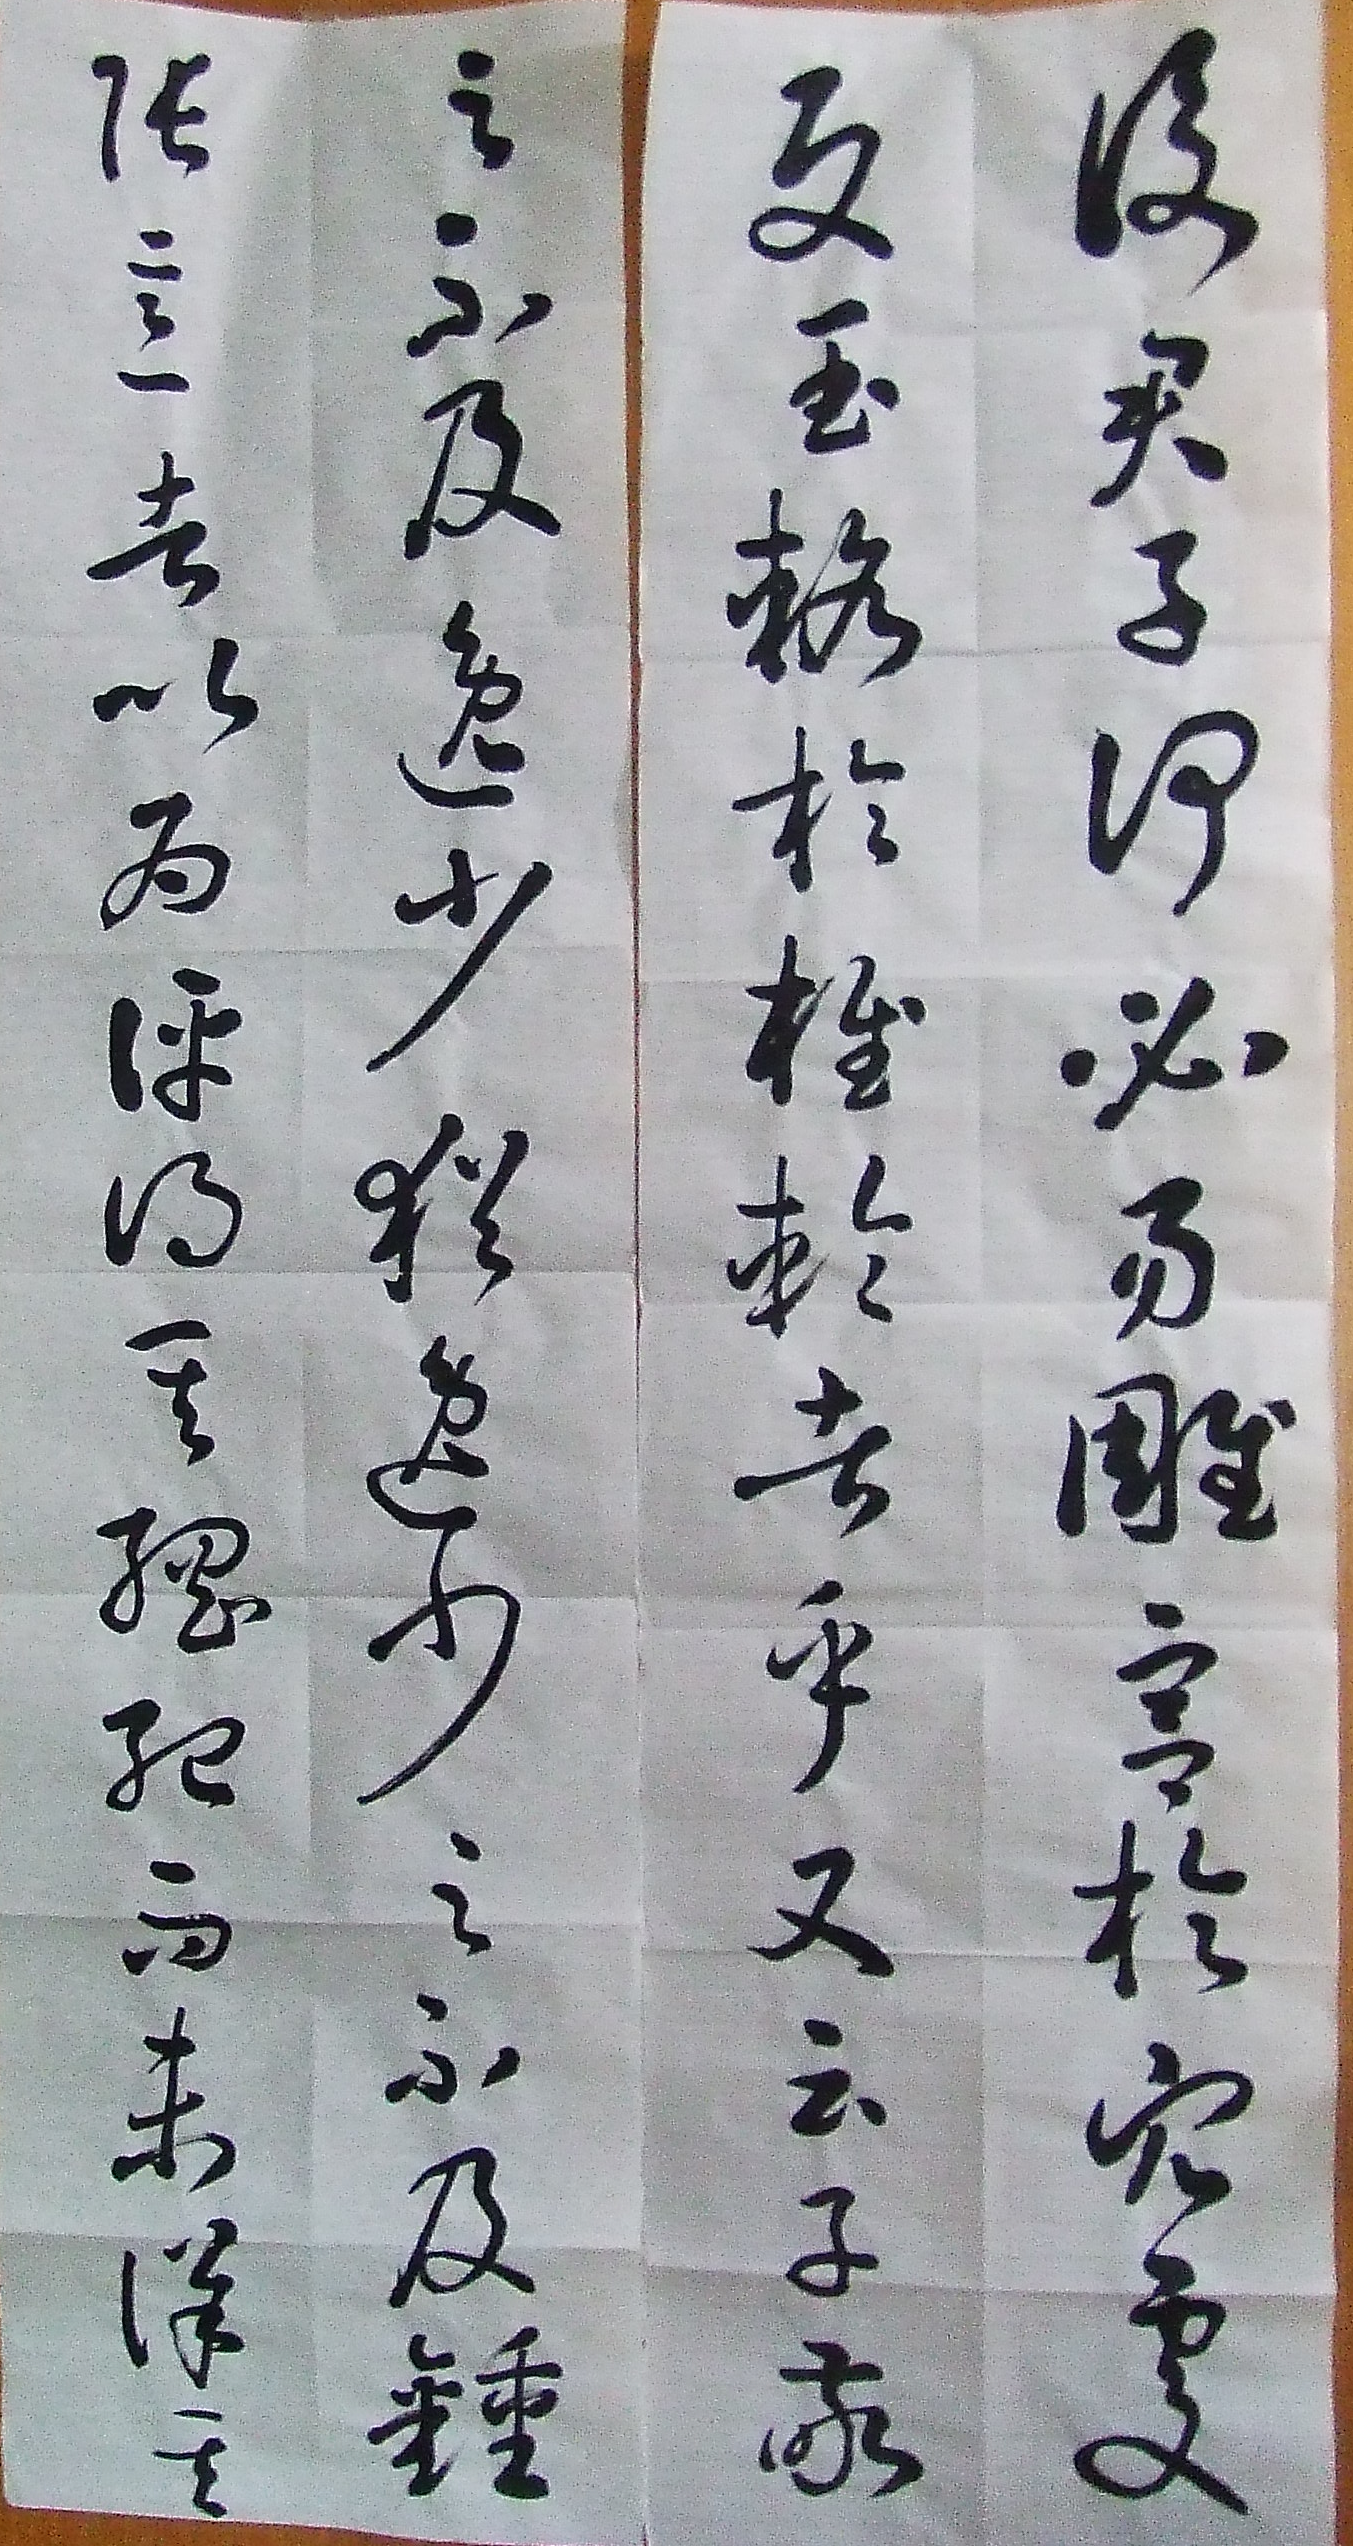 後君子何必易雕宮於穴處
反玉輅於椎輪者乎又云子敬
之不及逸少猶逸少之不及鍾
張意者以為評得其綱紀而未詳其